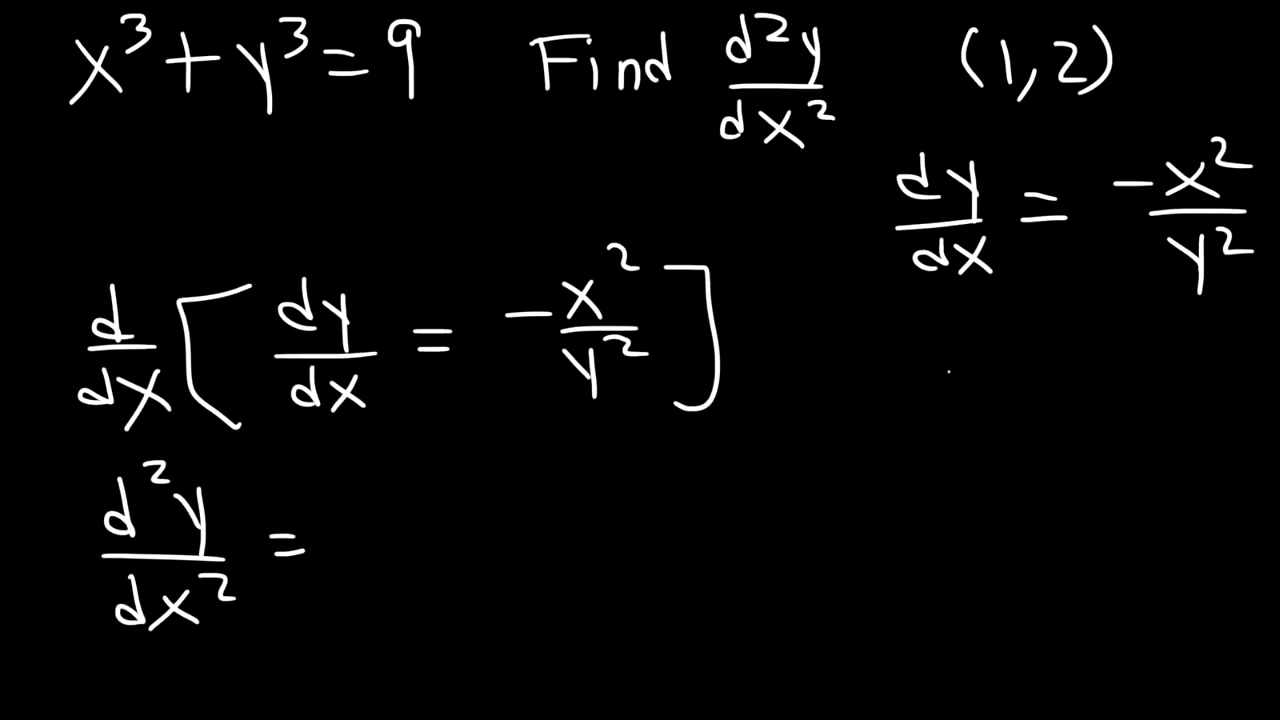 x³ + y³ = 9 Find d²y/dx² (1, 2)
dy/dx = -x²/y²
d/dx [ dy/dx = -x²/y² ]
d²y/dx² =